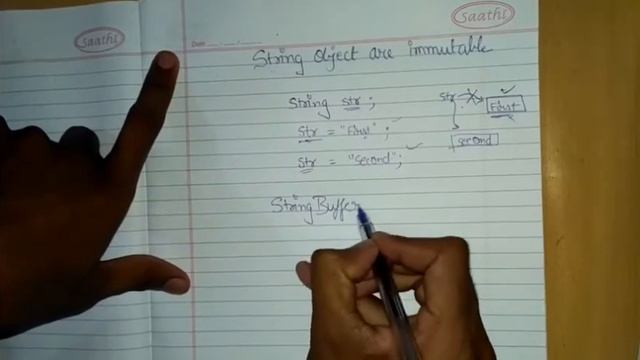 Saathi
Saathi
Date
String object are immutable
String str;
str = "First";
str = "second";
str
First
second
StringBuffer